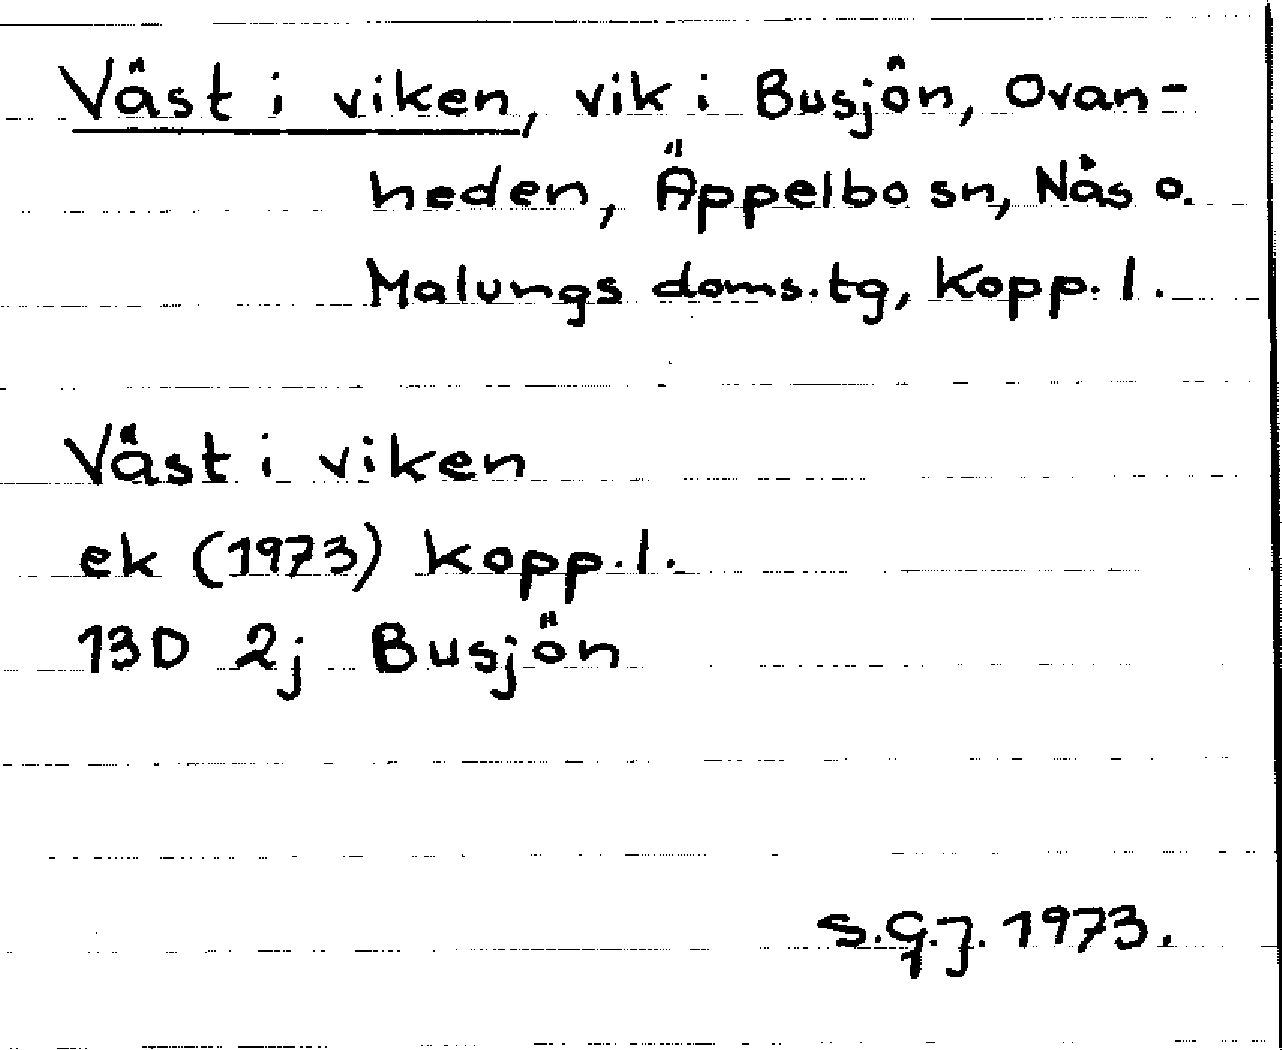 Väst i viken, vik i Busjön, Ovan-
heden, Äppelbo sn, Nås o.
Malungs doms.tg, Kopp. l.
Väst i viken
ek (1973) Kopp. l.
13D 2j Busjön
S.G.J. 1973.